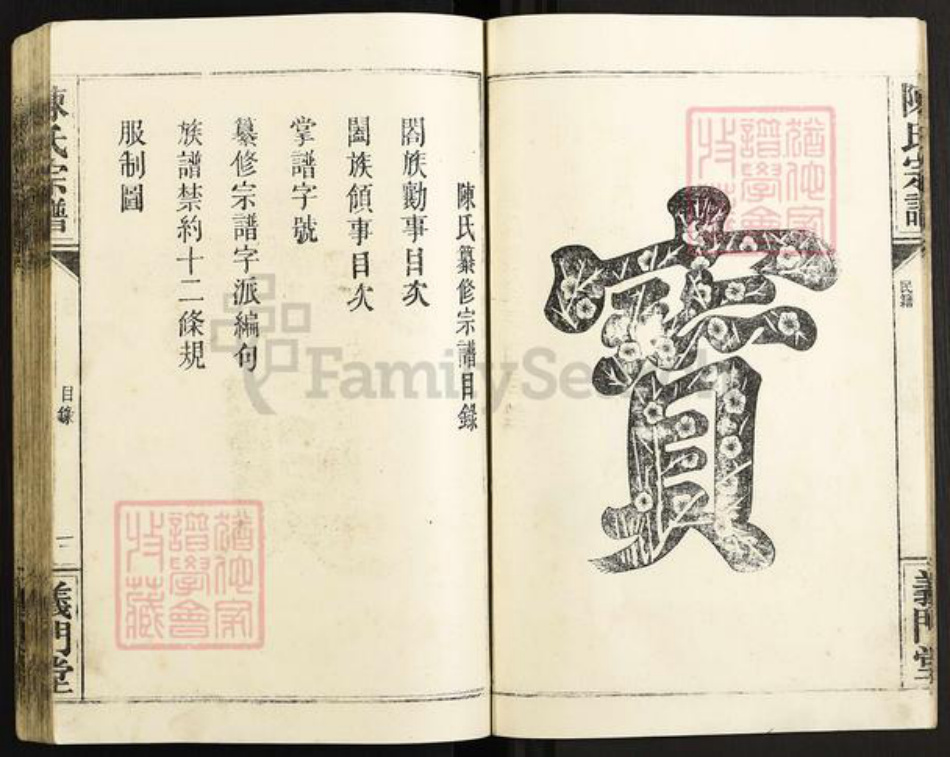 陳氏宗譜
民籍
義門堂
寳
猶他家譜學會收藏
陳氏纂修宗譜目錄
閤族勸事目次
闔族領事目次
掌譜字號
纂修宗譜字派編句
族譜禁約十二條規
服制圖
陳氏宗譜
目錄
義門堂
猶他家譜學會收藏
FamilySearch